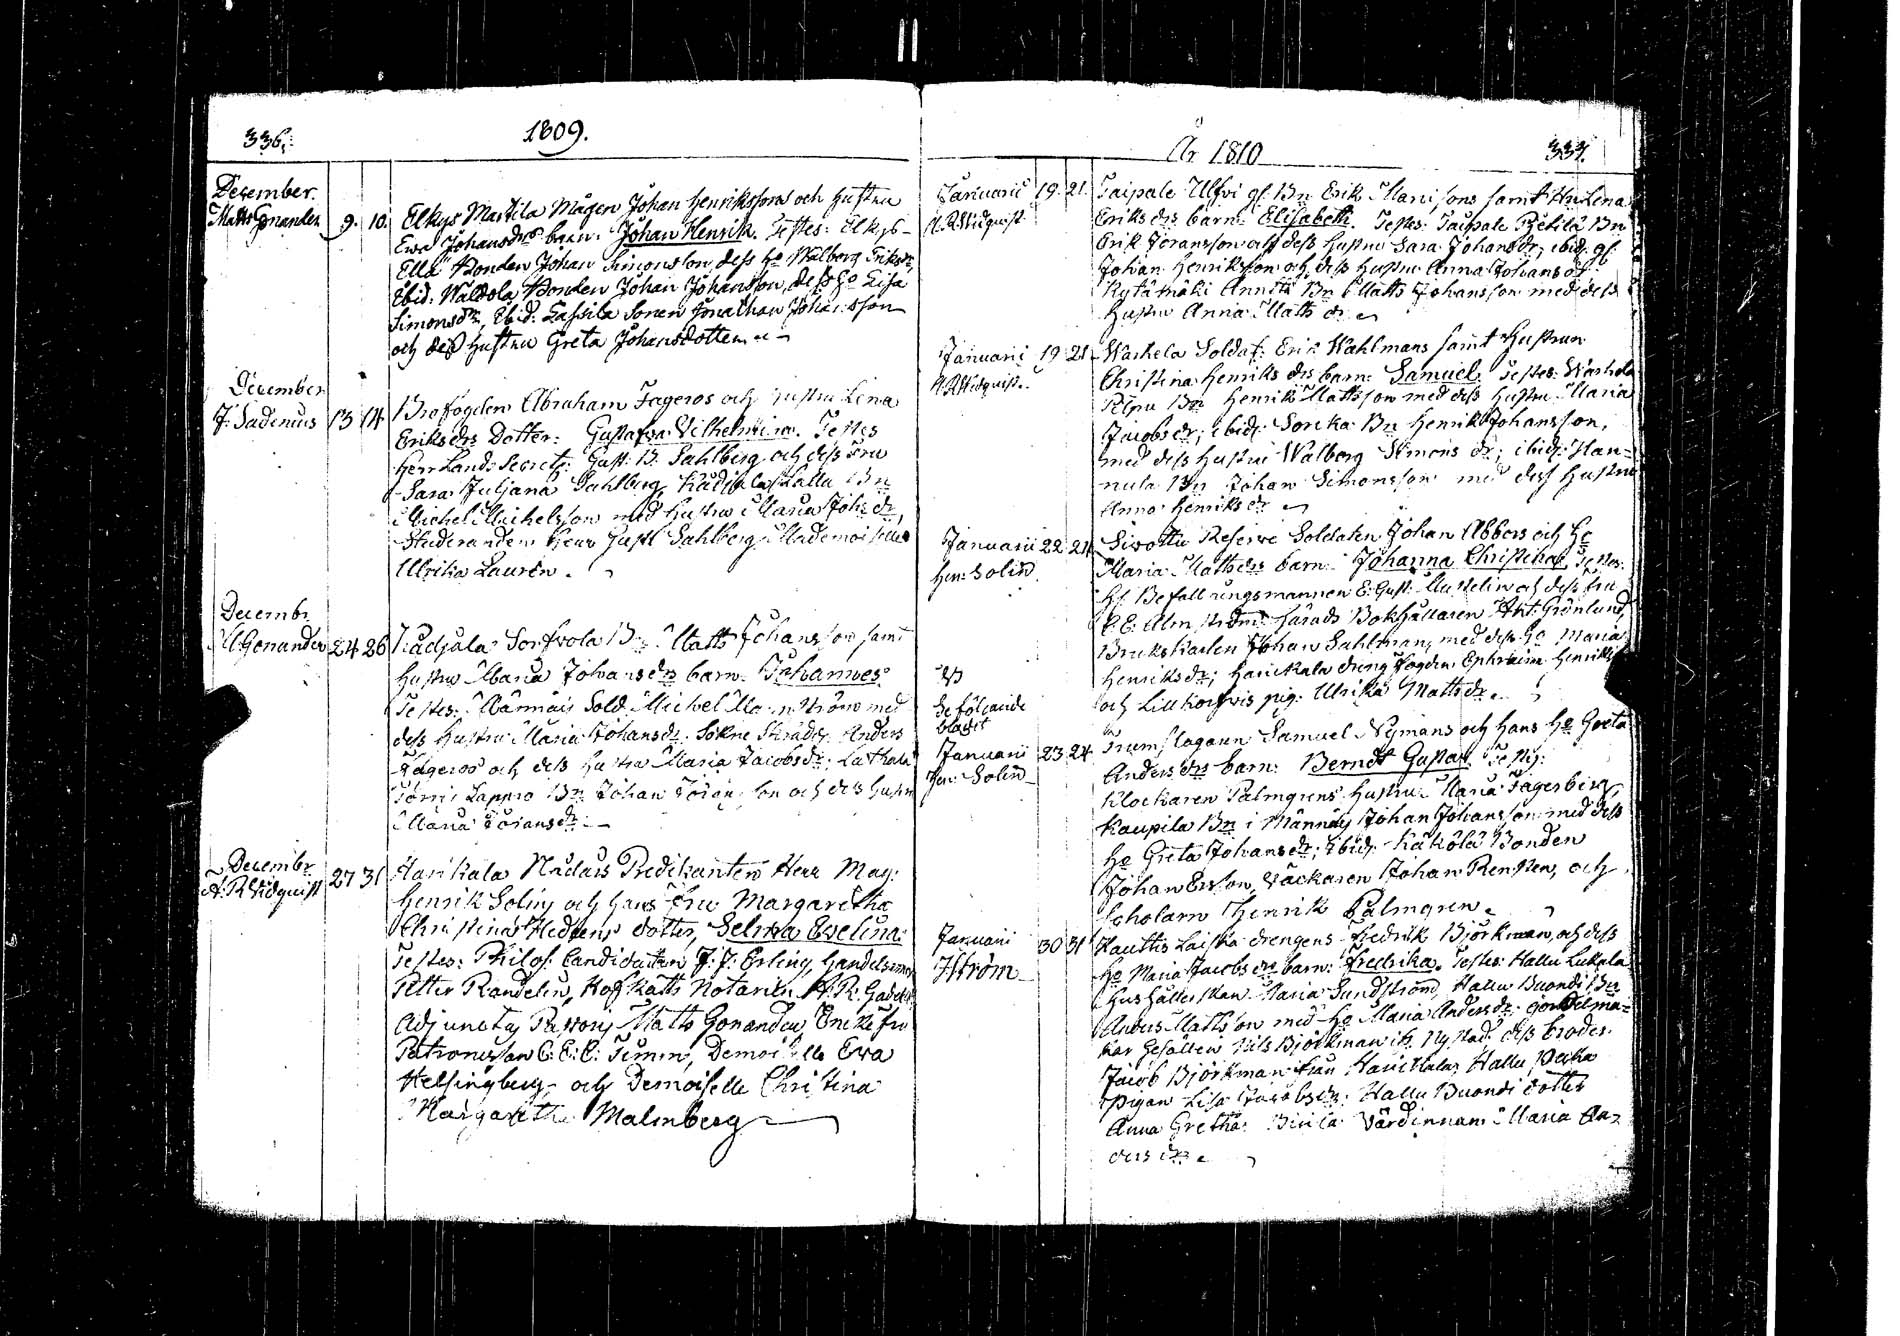 336.
1809.
December.
Matts Gonander 9. 10. Elkys Martila Mågen Johan Henriksson och Hustru
Ewa Johansdrs barn: Johan Henrik. Testes: Elkys-
Ella Bonden Johan Simonsson, dess Ho Walborg Eriksdr,
Ebid: Waldola Bonden Johan Johansson, dess Ho Lisa
Simonsdr, Ebid: Lassila Sonen Jonathan Johansson
och dess Hustru Greta Johansdotter
December
J: Sadenius 13 14 Brofogden Abraham Fageros och Hustru Lena
Eriksdrs Dotter: Gustafva Vilhelmina. Testes
Herr Land. Secret: Gust: B. Sahlberg och dess Fru
Sara Juliana Sahlberg, Kadjala Kallu Bn
Michel Michelsson med Hustru Maria Joh: dr,
Studeranden Herr Gust Sahlberg Mademoiselle
Ulrika Lauren.
Decembr
M Gonander 24 26 Kådjala Sorfvola Bn Matts Johansson samt
Hustru Maria Johansdrs barn. Johannes.
Testes: Männäis Sold: Michel med
dess Hustru Maria Johansdr. Sokne Skrädd: Anders
Fageros och dess Hustru Maria Jacobsdr;
Lappio Bn Johan son och dess Hustru
Maria Göransdr
Decembr
A: R Widquist 27 31 Harikala Nådårs Predikanten Herr Mag:
Henrik Solin och hans Fru Margaretha
Christina dotter, Selma Evelina.
Testes: Philos: Candidaten J: J: Erling, Handelsman
Petter Randelin, Hof Rätts Notarien A: R: Gadd
Adjuncten Pastor Matts Gonander, Enkefru
Patronessan C: E: C: Timm, Demoiselle Eva
Helsingberg, och Demoiselle Christina
Margaretha Malmberg
År 1810
337.
Januarii 19. 21. Taipale Ulfvi gl: Bn Erik Manssons samt Hu Lena
A. R Widquist Eriksdrs barn: Elisabeth. Testes: Taipale Pretilä Bn
Erik Jöransson och dess Hustru Sara Johansdr, ibid: gl.
Johan Henriksson och dess Hustru Anna Johansdr
Kytämäki Annila Bn Matts Johansson med dess
Hustru Anna Matts dr
Januarii 19 21 Warhela Soldat: Erik Wahlmans samt Hustrun
A R Widquist. Christina Henriksdrs barn: Samuel. Testes: Warhela
Bn Henrik Mattsson med dess Hustru Maria
Jacobsdr; ibid: Sorika Bn Henrik Johansson,
med dess Hustru Walborg Simons dr; ibid: Han=
nula Bn Johan Simonsson med dess Hustru
Anna Henriksdr
Januarii 22 24 Sivottu Reserve Soldaten Johan Abbors och Ho
Hen: Solin. Maria Mattsdrs barn: Johanna Christina. Testes:
Hl: Befallningsmannen E: Gust: Mustelin och dess Fru
C: E: Almström, Härads Bokhållaren Grönlund,
Brukskarlen Johan Sahlman, med dess Ho Maria
NB Henriksdr; Harickala dreng Fogden Ephraim Henriks
Se följande och pig: Ulrika Mattsdr.
bladet
Januari 23 24 Trumslagaren Samuel Nymans och hans Ho Greta
Hen: Solin Andersdrs barn: Berndt Gustav. Testes:
Klockaren Palmgrens Hustru Maria Fagerberg,
Kaupila Bn i Männäis Johan Johansson med dess
Ho Greta Johansdr; Ebid: Käkölä Bonden
Johan Ersson, Väckaren Johan Rensten, och
Scholarn Henrik Palmgren.
Januari 30 31 Hauttis Laiska drengens Fredrik Björkman, och dess
Jström Ho Maria Jacobsdrs barn: Fredrika. Testes: Hallu Lukala
Hushållerskan Maria Sundström, Hallu Buondi Bn
Anders Mattsson med Ho Maria Andersdr. gördelma=
kar Gesällen Nils Björkman ifr. Nystad: dess broder
Jacob Björkman från Harickala, Hallu Pecka
Pigan Lisa Jacobsdr. Hallu Buondi dotter
Anna Gretha: Värdinnan Maria An=
ders dr